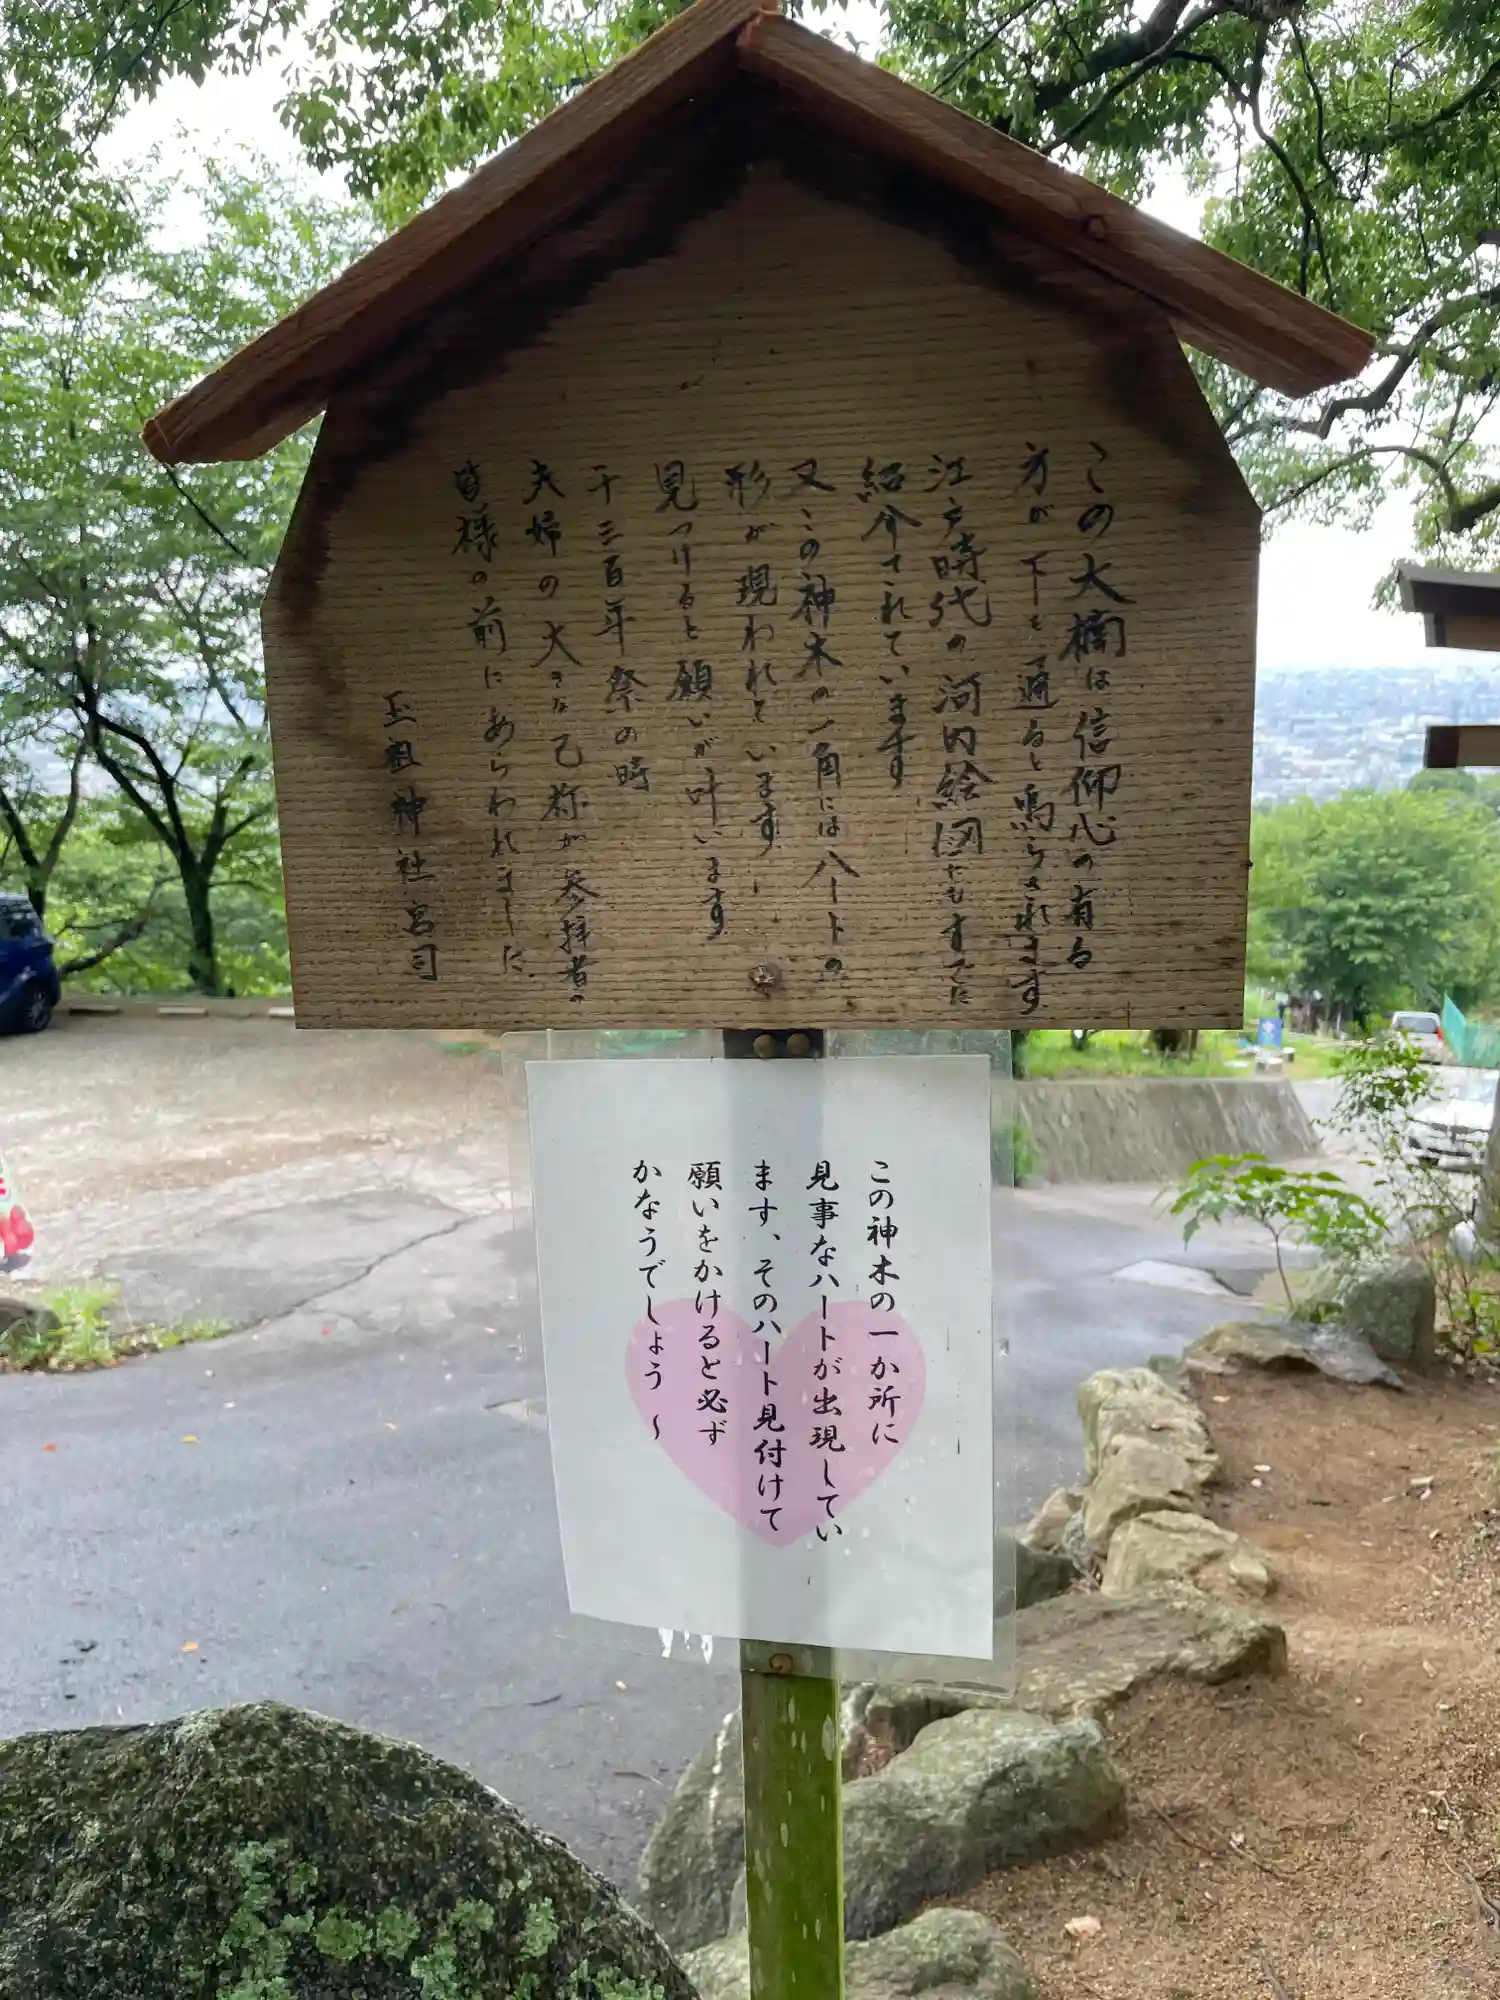 この大楠は信仰心の有る
方が下を通ると鳴らされます
江戸時代の河内絵図にもすでに
紹介されています
又この神木の一角にはハートの
形が現われています
見つけると願いが叶います
千三百年祭の時
夫婦の大きな乙称が参拝者の
皆様の前にあらわれました
玉祖神社宮司
この神木の一か所に
見事なハートが出現してい
ます、そのハート見付けて
願いをかけると必ず
かなうでしょう〜